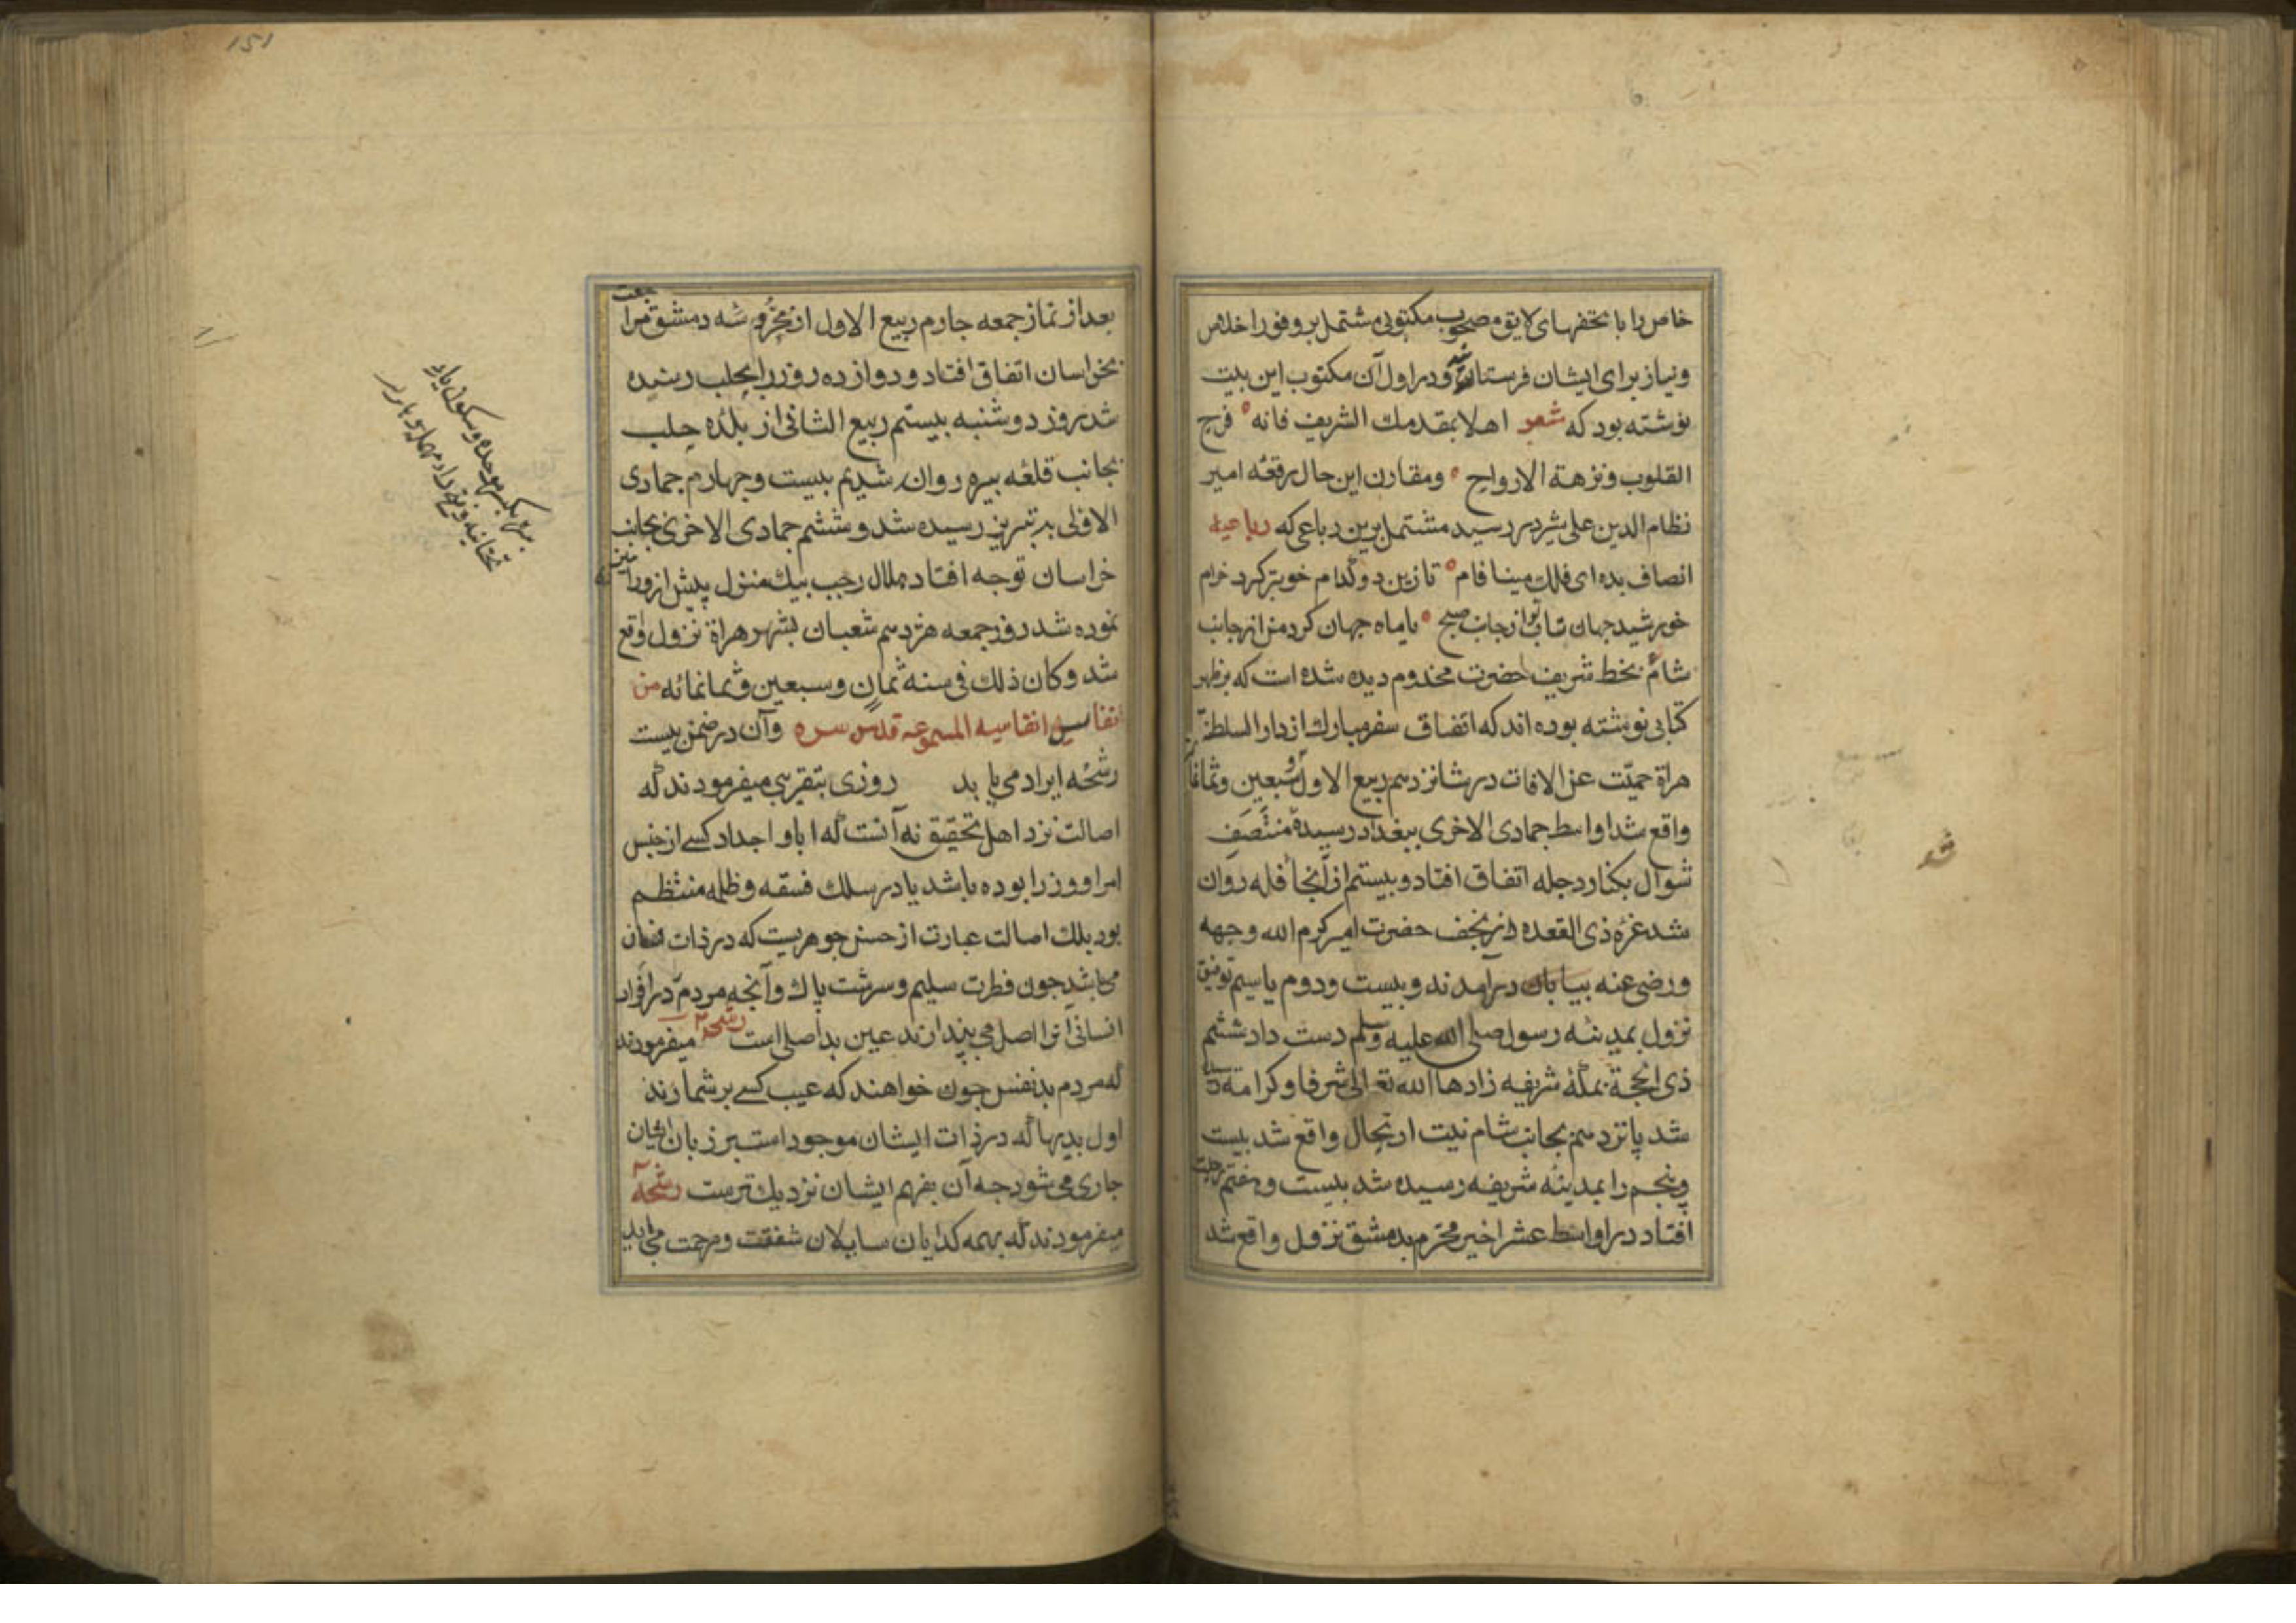 خاص را با تحفهای لایق مصحوب مکتوبی مشتمل بر وفور اخلاص
ونیاز برای ایشان فرستاد و در اول آن مکتوب این بیت
نوشته بود که شعر اهلا بمقدمك الشریف فانه فرح
القلوب ونزهة الارواح ومقارن این حال رقعه امیر
نظام الدین علی شیر در رسید مشتمل برین رباعی که رباعیه
انصاف بده ای فلك مینا فام تا زین دو کدام خوبتر کرد خرام
خورشید جهان تاب تو از جانب صبح یا ماه جهان کرد من از جانب
شام بخط شریف حضرت مخدوم دیده شده است که بر ظهر
کتابی نوشته بوده اند که اتفاق سفر مبارك از دار السلطنة
هراة حمیت عن الافات در شانزدهم ربیع الاول سبعین وثمانمائه
واقع شد اواسط جمادی الاخری ببغداد رسیده منتصف
شوال بکنار دجله اتفاق افتاد و بیستم از آنجا قافله روان
شد غره ذی القعده از نجف حضرت امیر کرم الله وجهه
ورضی عنه بیابان درآمدند وبیست ودوم یا سیم توفیق
نزول بمدینه رسول صلی الله علیه وسلم دست داد ششم
ذی الحجة بمکه شریفه زادها الله تعالی شرفا وکرامة رسیده
شد پانزدهم بجانب شام نیت ارتحال واقع شد بیست
وپنجم را بمدینه شریفه رسیده شد بیست وهفتم رحلت
افتاد در اواسط عشر اخیر محرم بدمشق نزول واقع شد
شد
151
بعد از نماز جمعه چارم ربیع الاول از محروسه دمشق مراجعت
بخراسان اتفاق افتاد و دوازده روز را بحلب رسیده
شد بروز دوشنبه بیستم ربیع الثانی از بلده حلب
بجانب قلعه بیره روان شدیم بیست وچهارم جمادی
الاولی به تبریز رسیده شد و ششم جمادی الاخری بجانب
خراسان توجه افتاد هلال رجب بیك منزل پیش از ورامین
نموده شد روز جمعه هژدهم شعبان بشهر هراة نزول واقع
شد وکان ذلك فی سنه ثمان وسبعین وثمانمائه من
انفاس انفاسیه المسموعه قدس سره وآن در ضمن بیست
رشحه ایراد می یابد روزی بتقریبی میفرمودند که
اصالت نزد اهل تحقیق نه آنست که ابا و اجداد کسی از جنس
امرا ووزرا بوده باشد یا در سلك فسقه وظلمه منتظم
بود بلك اصالت عبارت از حسن جوهریست که در ذات انسان
می باشد چون فطرت سلیم وسرشت پاك وآنچه مردم در افراد
انسانی آنرا اصل می پندارند عین بد اصلی است رشحه ۲ میفرمودند
که مردم بدنفس چون خواهند که عیب کسی برشمارند
اول بدیها که در ذات ایشان موجود است بر زبان ایشان
جاری می شود چه آن بفهم ایشان نزدیك ترست رشحه ۳
میفرمودند که بهمه کدایان سایلان شفقت ومرحمت می باید
بیره بکسر موحده وسکون یاء
تحتانیه وفتح راء مهمله